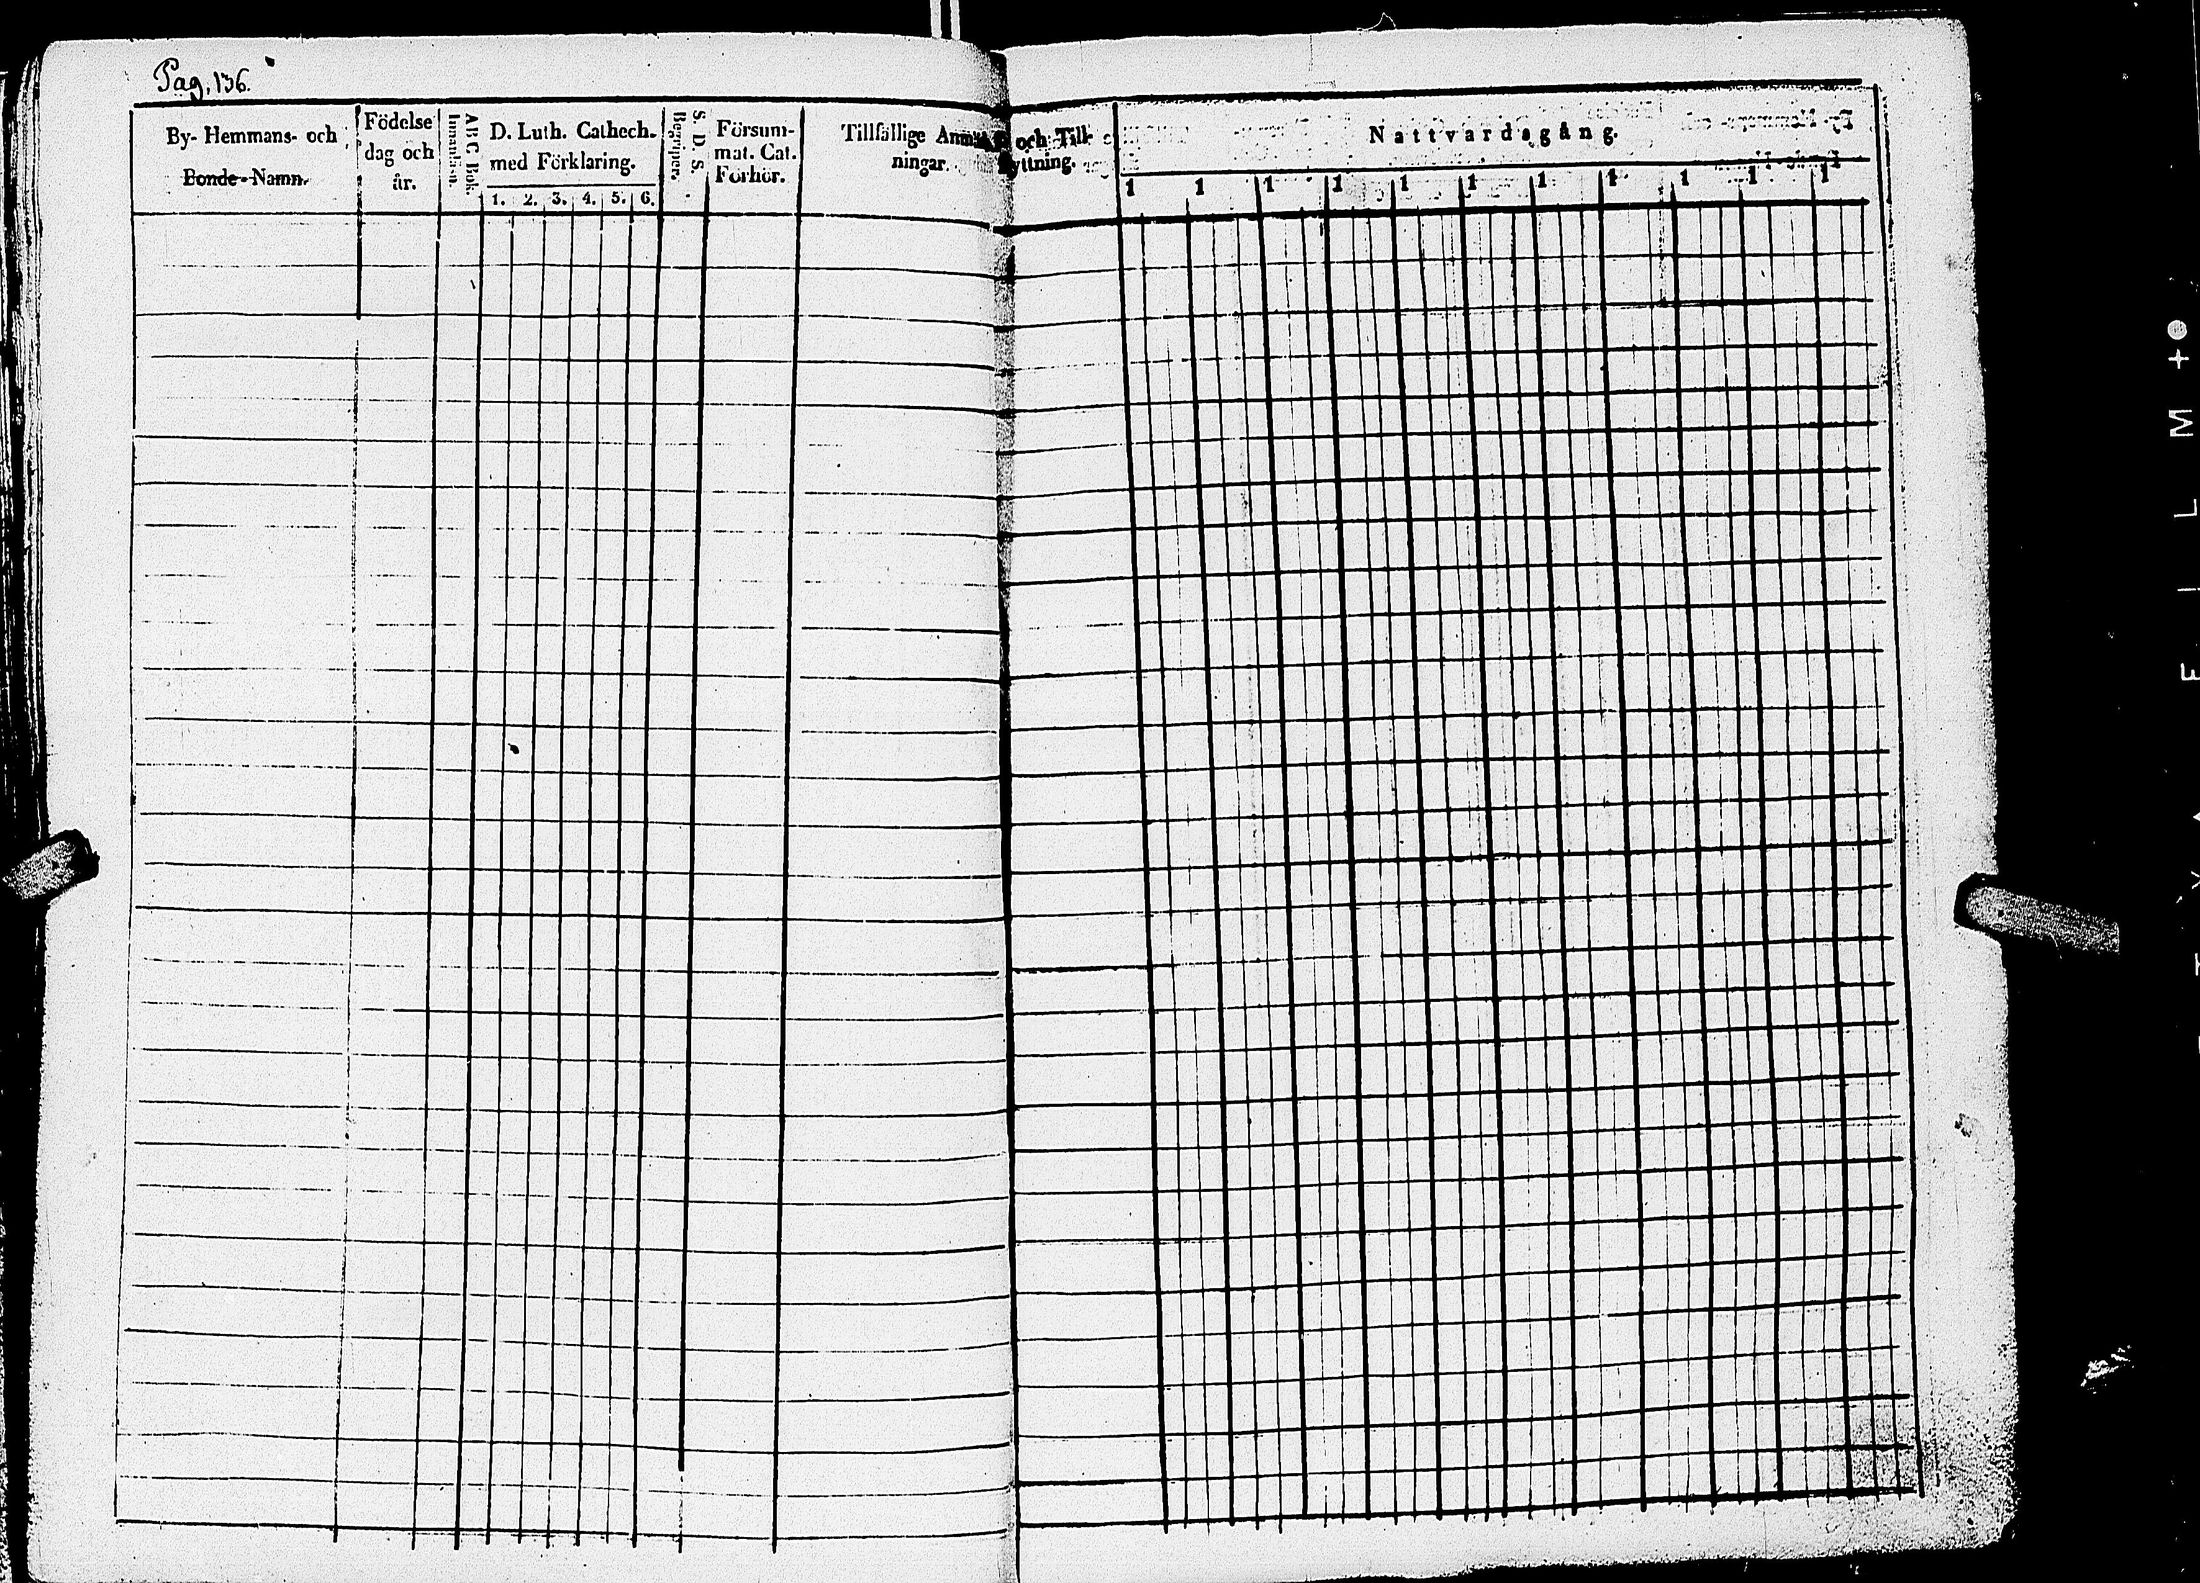 Pag. 136.
By- Hemmans- och
Bonde-Namn.
Födelse
dag och
år.
A B C Bok.
Innanläsn.
D. Luth. Cathech.
med Förklaring.
1. 2. 3. 4. 5. 6.
S. D. S.
Begriper.
Försum-
mat. Cat.
Förhör.
Tillfällige Anmärk-
ningar.
och Till-
flyttning.
Nattvardsgång.
1 1 1 1 1 1 1 1 1 1 1
M
L
I
F